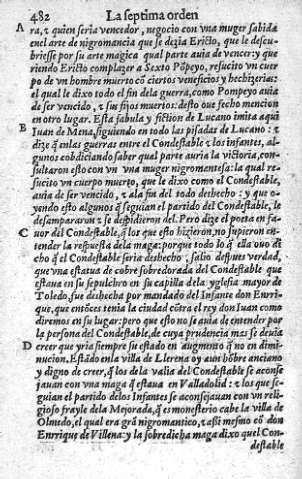 482 La septima orden
A ra, τ quien seria vencedor, negocio con vna muger sabida
en el arte de nigromancia que se dezia Ericto, que le descu-
briesse por su arte magica qual parte auia de vencer: y que
riendo Ericto complazer a Sexto Põpeyo, resucito vn cuer
po de vn hombre muerto cõ ciertos veneficios y hechizerias:
el qual le dixo todo el fin dela guerra, como Pompeyo auia
de ser vencido, τ sus fijos muertos: desto oue fecho mencion
en otro lugar. Esta fabula y fiction de Lucano imita aqui
B Iuan de Mena, siguiendo en todo las pisadas de Lucano: τ
dize q̃ en las guerras entre el Condestable τ los infantes, al-
gunos cobdiciando saber qual parte auria la victoria, con-
sultaron esto con vna muger nigromantesa: la qual re-
sucito vn cuerpo muerto, que le dixo como el Condestable,
auia de ser vencido, τ ala fin del todo deshecho: y que o-
yendo esto algunos q̃ seguian el partido del Condestable, le
desampararon τ se despidieron del. Pero dize el poeta en fa-
C uor del Condestable, q̃ los que esto hizieron, no supieron en-
tender la respuesta dela maga: porque todo lo q̃ ella ouo di
cho q̃ el Condestable seria deshecho, salio despues verdad,
que vna estatua de cobre sobredorada del Condestable que
estaua en su sepulchro en su capilla dela yglesia mayor de
Toledo, fue deshecha por mandado del Infante don Enrri-
que, que entõces tenia la ciudad cõtra el rey don Iuan como
diremos en su lugar: pero que esto no se auia de entender por
la persona del Condestable, de cuya prudencia mas se deuia
D creer que yria siempre su estado en augmento q̃ no en dimi-
nucion. Estãdo en la villa de Llerena oy a vn hõbre anciano
y digno de creer, q̃ los dela valia del Condestable se aconse
jauan con vna maga q̃ estaua en Valladolid: τ los que se-
guian el partido delos Infantes se aconsejauan con vn reli-
gioso frayle dela Mejorada, q̃ es monesterio cabe la villa de
Olmedo, el qual era grã nigromantico, τ assi mesmo cõ don
Enrrique de Villena: y la sobredicha maga dixo quel Con-
destable